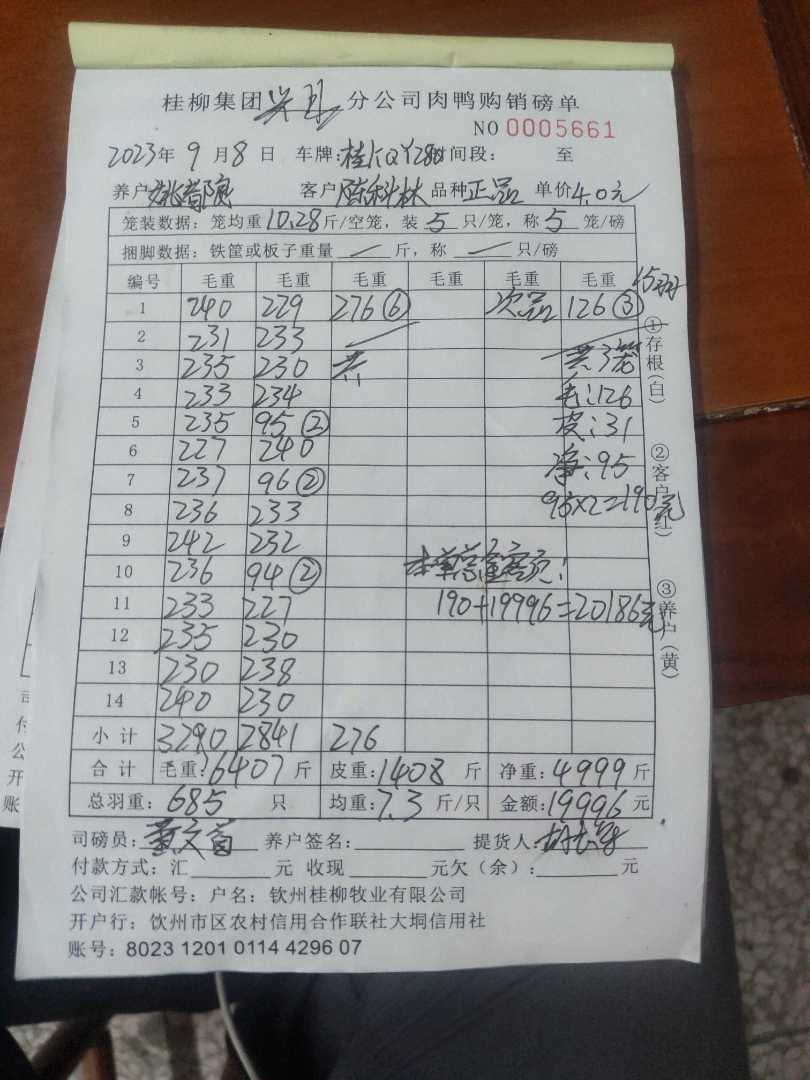 桂柳集团 分公司肉鸭购销磅单
NO 0005661
2023年 9 月 8 日 车牌: 桂KQY280 时间段: 至
养户 客户 陈科林 品种 正品 单价 4.0元
笼装数据: 笼均重 10.28 斤/空笼, 装 5 只/笼, 称 5 笼/磅
捆脚数据: 铁筐或板子重量 — 斤, 称 — 只/磅
编号 毛重 毛重 毛重 毛重 毛重 毛重 15羽
1 240 229 276⑥ 次品 126③
2 231 233
3 235 230 共 共3笼
4 233 234 毛:126
5 235 95② 皮:31
6 227 240 净:95
7 237 96② 95×2=190元
8 236 233
9 242 232
10 236 94② 本单总金额为:
11 233 227 190+19996=20186元
12 235 230
13 230 238
14 240 230
小计 3290 2841 276
合计 毛重: 6407 斤 皮重: 1408 斤 净重: 4999 斤
总羽重: 685 只 均重: 7.3 斤/只 金额: 19996 元
①存根(白)
②客户(红)
③养户(黄)
司磅员: 养户签名: 提货人:
付款方式: 汇 元 收现 元欠(余): 元
公司汇款帐号: 户名: 钦州桂柳牧业有限公司
开户行: 饮州市区农村信用合作联社大垌信用社
账号: 8023 1201 0114 4296 07